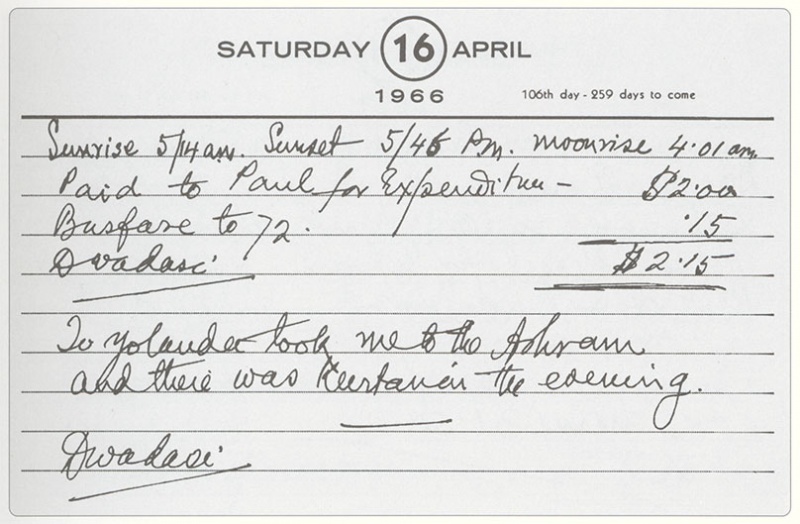 SATURDAY 16 APRIL
1966 106th day - 259 days to come
Sunrise 5/14 am. Sunset 5/46 Pm. moonrise 4.01 am
Paid to Paul for Expenditure - $2.00
Busfare to 72. .15
Dwadasi $2.15
To Yolander took me to the Ashram
and there was Keertan in the evening.
Dwadasi